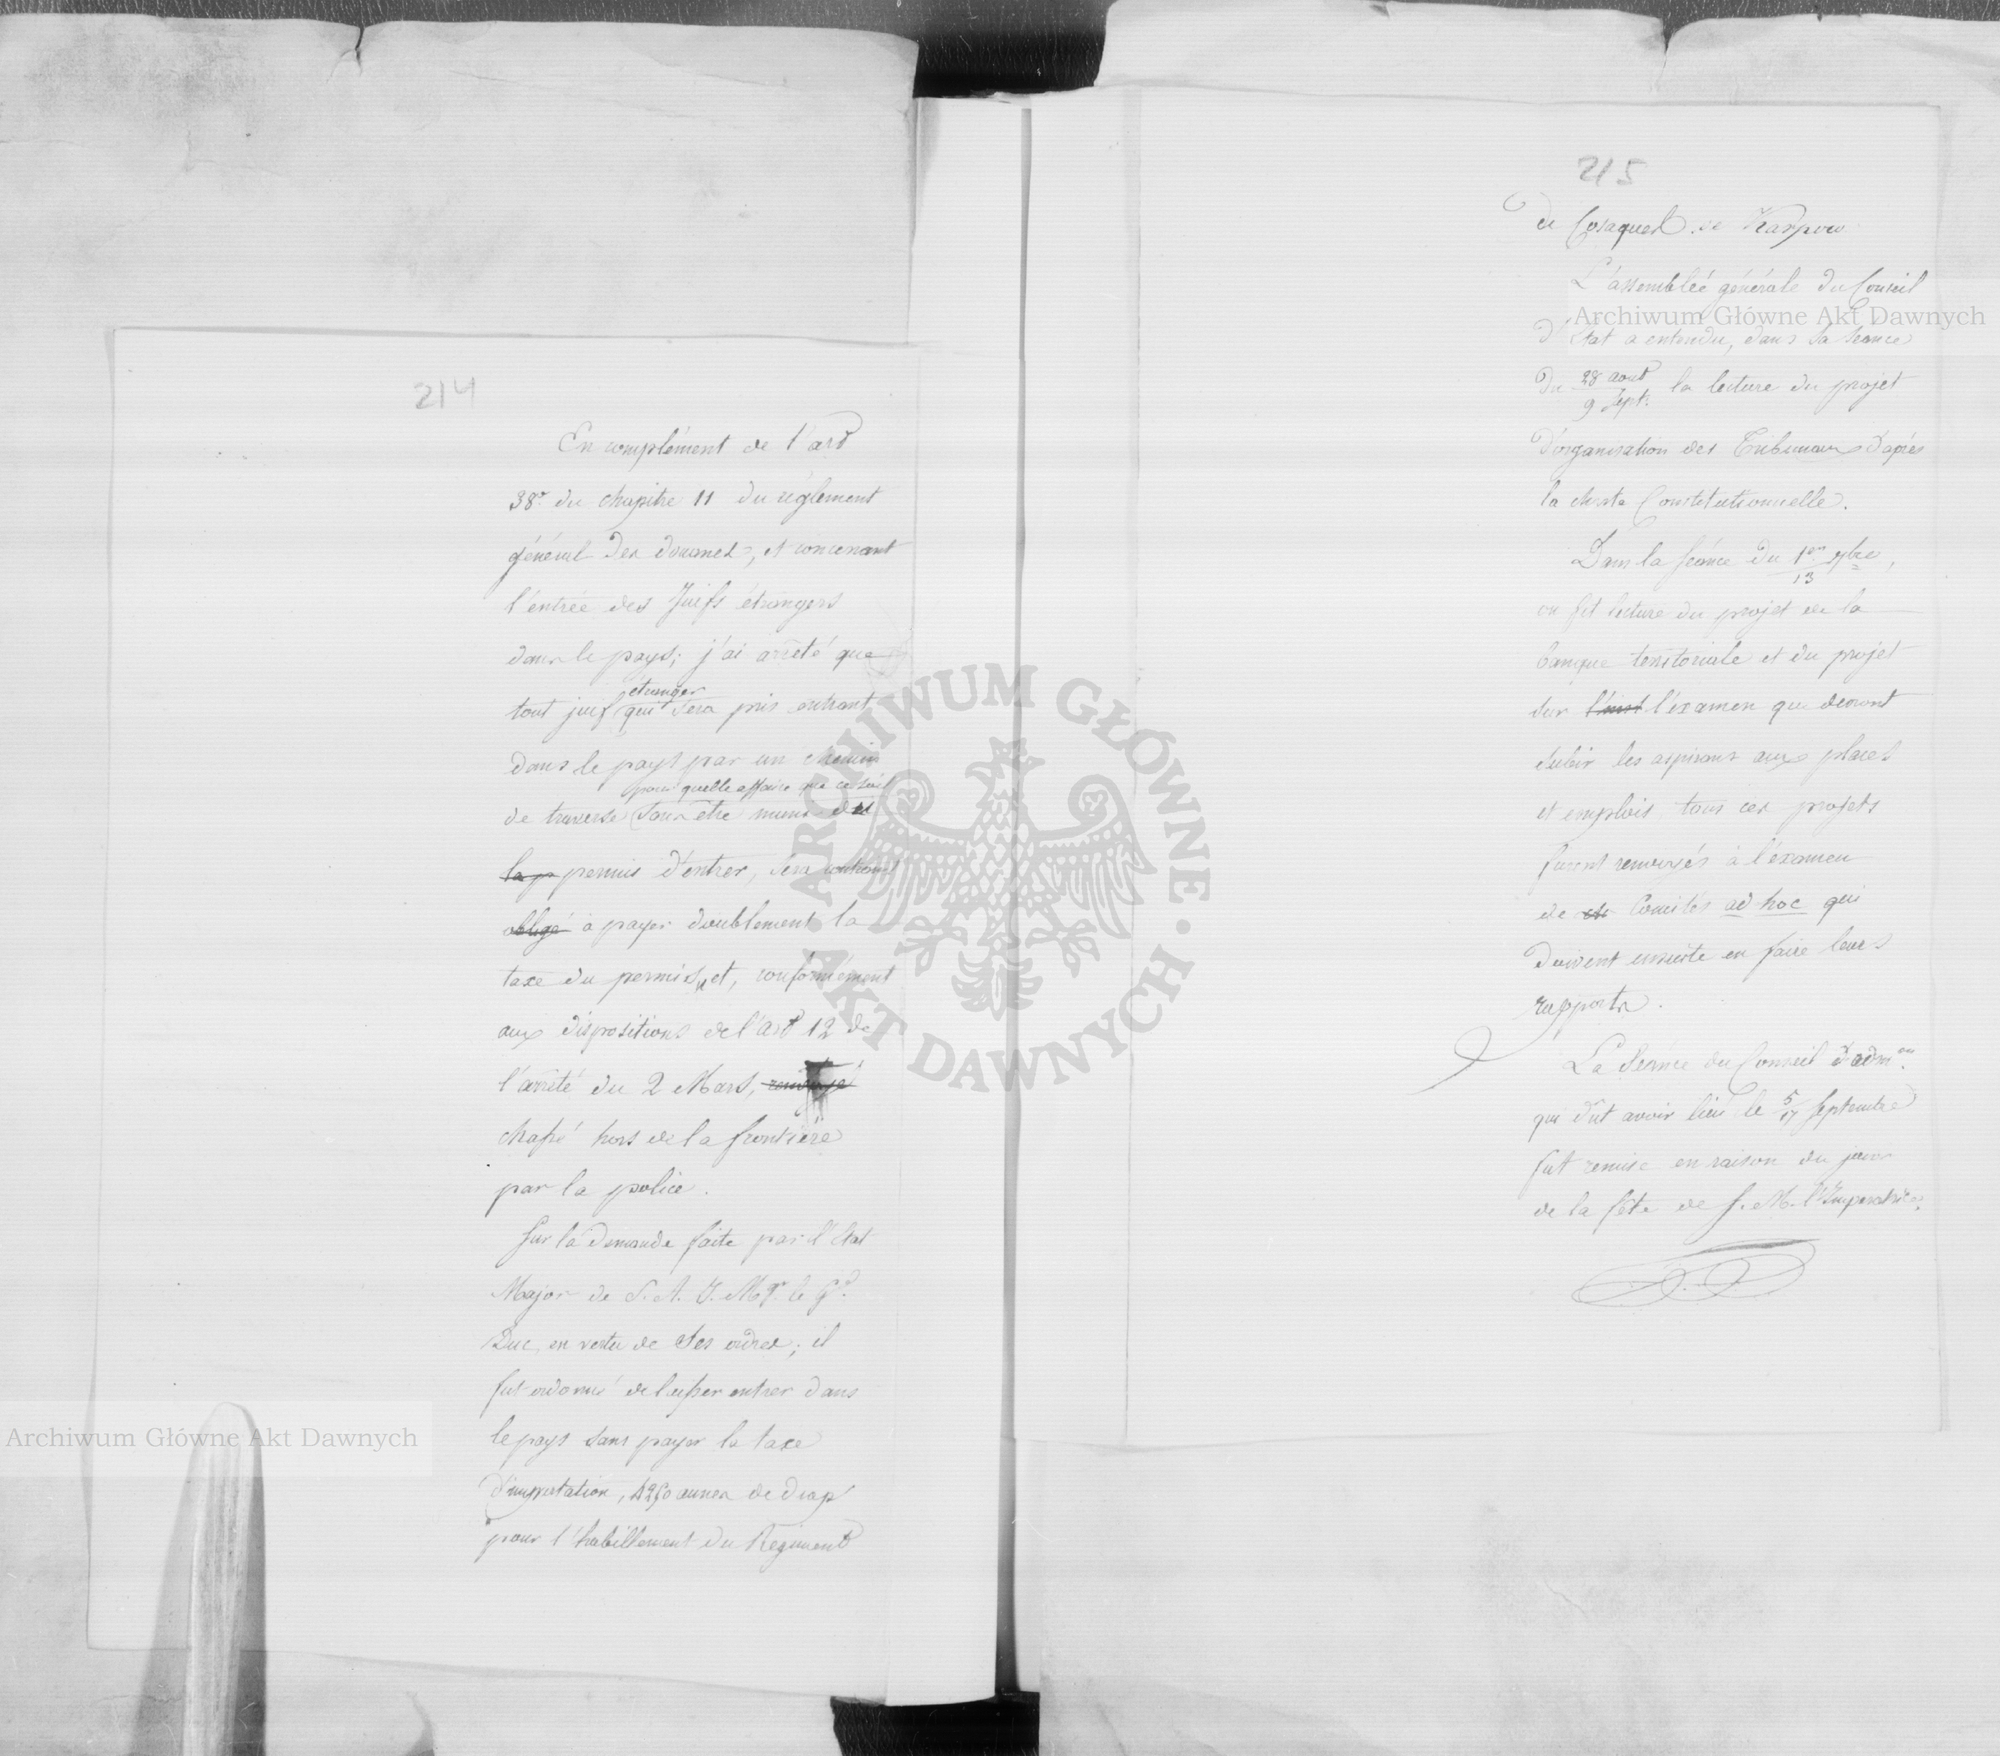 214
En complément de l'art
38e du chapitre 11 du réglement
général des douanes, et concernant
l'entrée des Juifs étrangers
dans le pays; j'ai arrêté que
étranger
tout juif qui sera pris entrant
dans le pays par un chemin
pour quelle affaire que ce soit
de traverse sans être muni du
la p permis d'entrer, sera contraint
obligé à payer doublement la
taxe du permis, et, conformément
aux dispositions de l'art 12 de
l'arrêté du 2 Mars, renvoyé
chassé hors de la frontière
par la police.
Sur la demande faite par l'Etat
Major de S. A. I. Mgr. le Gd.
Duc, en vertu de Ses ordres; il
fut ordonné de laisser entrer dans
le pays sans payer la taxe
d'importation, 4250 aunes de drap
pour l'habillement du Régiment
215
de Cosaques de Karpow
L'assemblée générale du Conseil
d'Etat a entendu, dans sa séance
du 28 aout la lecture du projet
9 Sept.
d'organisation des Tribunaux d'après
la charte Constitutionnelle.
Dans la séance du 1er 7bre,
13
on fit lecture du projet de la
banque territoriale et du projet
sur l'inst l'éxamen que devront
subir les aspirans aux places
et emplois tous ces projets
furent renvoyés à l'éxamen
de Comités ad hoc qui
doivent ensuite en faire leurs
rapports.
La Séance du Conseil d'admon.
qui dut avoir lieu le 5/17 Septembre
fut remise en raison du jour
de la fête de S. M. l'Impératrice.
Archiwum Główne Akt Dawnych
Archiwum Główne Akt Dawnych
ARCHIWUM GŁÓWNE · AKT DAWNYCH ·